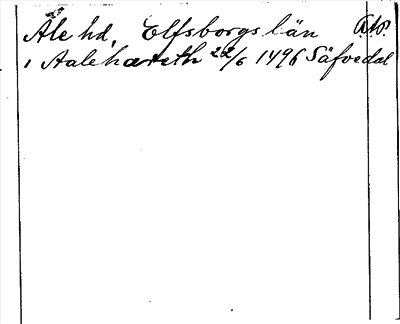 Åle hd, Elfsborgs län
i Aalehæreth 22/6 1496 Säfvedal